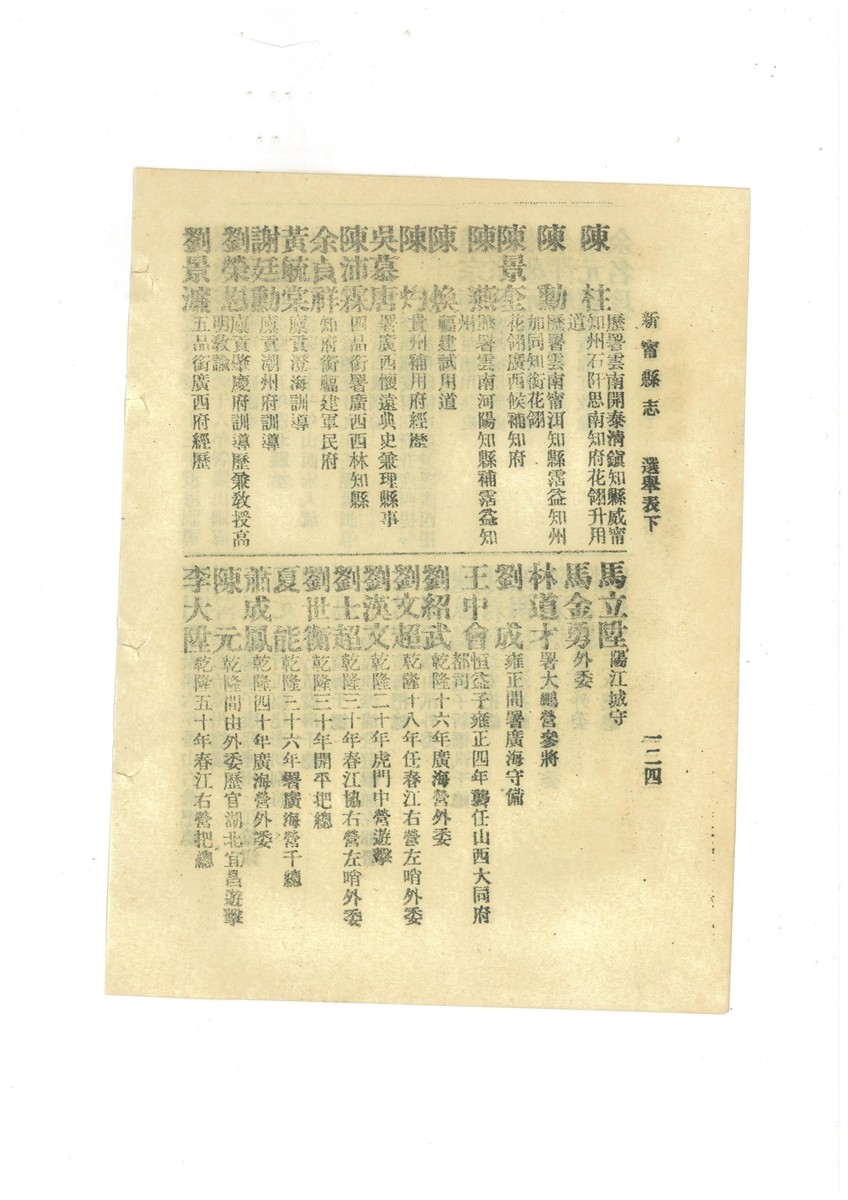 新甯縣志　選舉表下　一二四
陳　柱　歷署雲南開泰清鎭知縣威甯
知州石阡思南知府花翎升用
道
陳　勳　歷署雲南甯洱知縣霑益知州
加同知銜花翎
陳景奎　花翎廣西候補知府
陳　燕　歷署雲南河陽知縣補霑益知
州
陳　煥　福建試用道
陳　灼　貴州補用府經歷
吳慕唐　署廣西懷遠典史兼理縣事
陳沛霖　四品銜署廣西西林知縣
余良祥　知府銜福建軍民府
黃毓棠　廩貢澄海訓導
謝廷勳　廩貢潮州府訓導
劉榮恩　廩貢肇慶府訓導歷兼敎授高
明敎諭
劉景濂　五品銜廣西府經歷
馬立陞　陽江城守
馬金勇　外委
林道才　署大鵬營參將
劉　成　雍正間署廣海守備
王中會　恒益子雍正四年襲任山西大同府
都司
劉紹武　乾隆十六年廣海營外委
劉文超　乾隆十八年任春江右營左哨外委
劉漢文　乾隆二十年虎門中營遊擊
劉士超　乾隆三十年春江協右營左哨外委
劉世衡　乾隆三十年開平把總
夏　能　乾隆三十六年署廣海營千總
蕭成鳳　乾隆四十年廣海營外委
陳　元　乾隆間由外委歷官湖北宜昌遊擊
李大陞　乾隆五十年春江右營把總